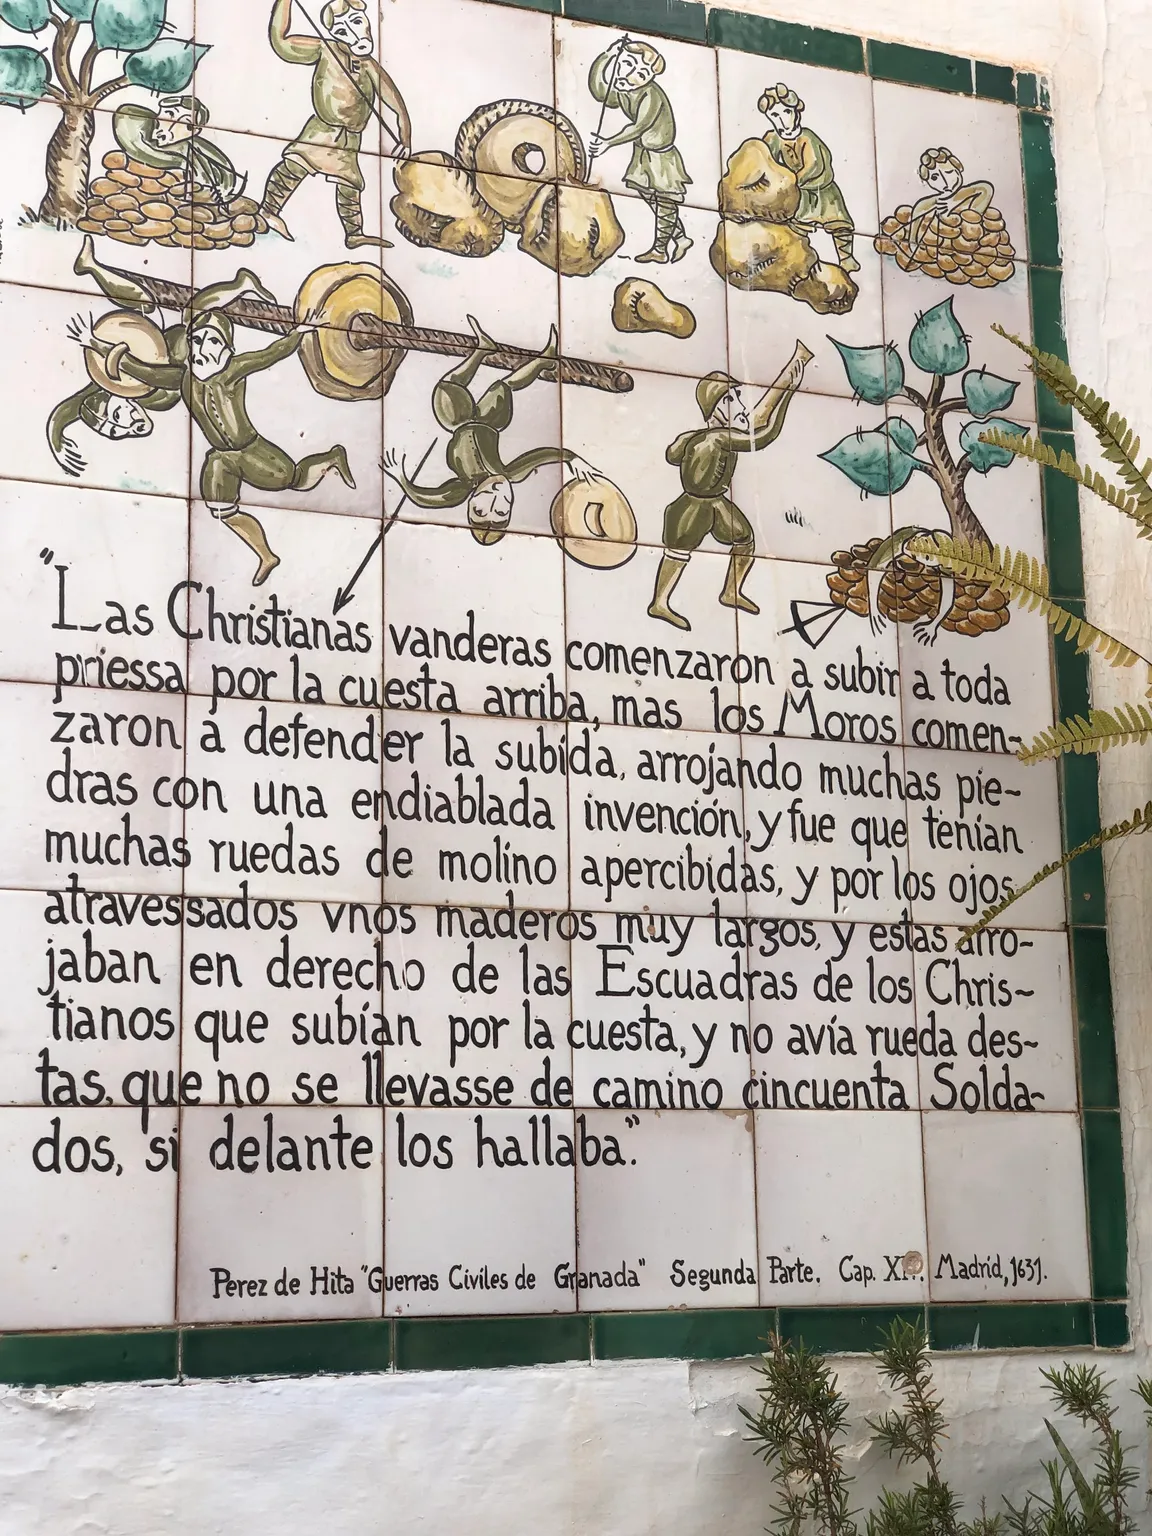 "Las Christianas vanderas comenzaron a subir a toda
priessa por la cuesta arriba, mas los Moros comen~
zaron a defender la subida, arrojando muchas pie~
dras con una endiablada invención, y fue que tenían
muchas ruedas de molino apercibidas, y por los ojos
atravessados vnos maderos muy largos, y estas arro~
jaban en derecho de las Escuadras de los Chris~
tianos que subían por la cuesta, y no avía rueda des~
tas, que no se llevasse de camino cincuenta Solda~
dos, si delante los hallaba."
Perez de Hita "Guerras Civiles de Granada" Segunda Parte. Cap. Madrid, 1631.